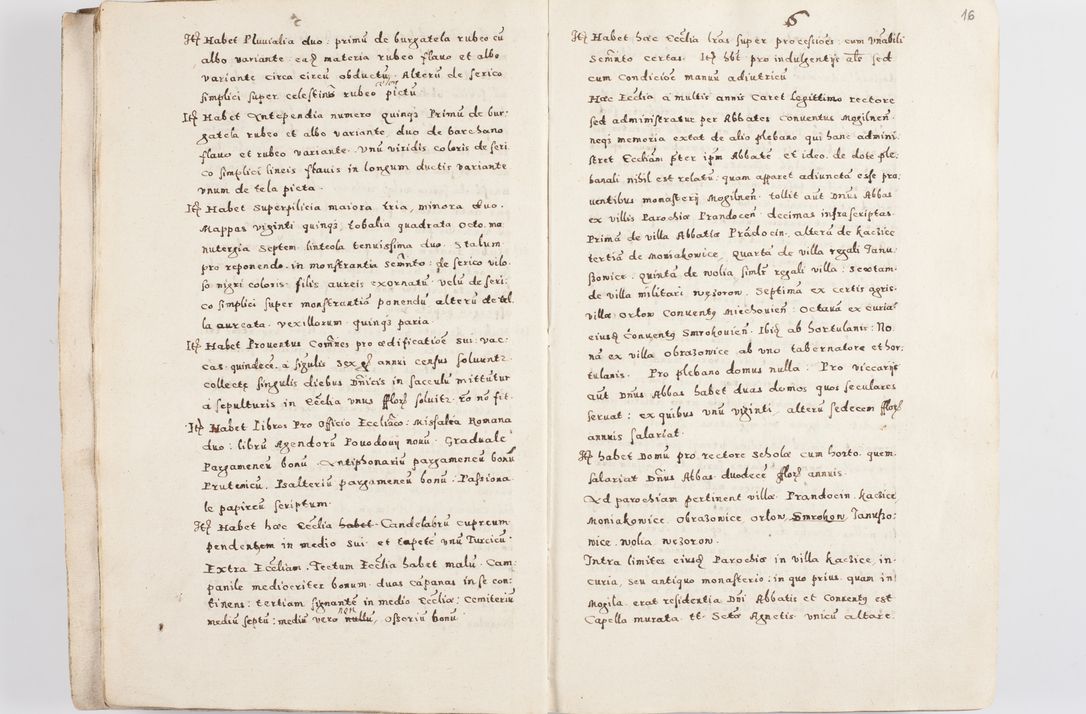 Itē Habet Pluuialia duo: primū de burgatela rubeo cū
albo variante. eaq materia rubeo flauo et albo
variante circa circū obductū. Alterū de serico
simplici super celestinū rubeo pictū
Itē Habet Antependia numero quinq Primū de bur-
gatela rubeo et albo variante, duo de barchano
flauo et rubeo variante. Vnū viridis coloris de seri
co simplici lineis flauis in longum ductis variante
vnum de tela picta.
Itē Habet Superpilicia maiora tria, minora duo.
Mappas viginti quinq, tobalia quadrata octo. ma
nutergia Septem. linteola tenuissima duo. Stalum
pro reponendo in monstrantia Semnto: de serico vilo
so nigri coloris filis aureis exornatū. velū de seri:
co simplici super monstrantiā ponendū alterū de tel
la aurcata. vexillorum quinq paria
Itē Habet Prouentus Comnes pro ædificatioē sui: vac-
cas quindecē. a sigulis sex annui census soluunt
collecte singulis diebus Dnicis in sacculū mittūtur
a sepulturis in Ecclia vnus floř soluit. Ro no fit.
Itē Habet libros Pro Officio Eccliaco: Missalia Romana
duo: librū Agendorū Powodouij nouū. Graduale
Pargameneū bonū. Antiphonariū pargameneū bonū
Prutenicū. Psalteriū pargameneū bonū. Passiona
le papireū scriptum.
Itē Habet hæc Ecclia habet Candelabrū cupreum
pendentem in medio sui et tapetē vnū Turcicū
Extra Eccliam. Tectum Ecclia habet malū. Cam
panile mediocriter bonum. duas cāpanas in se con:
tinens: tertiam signantē in medio Ecclia: Cemiteriū
mediū septū: mediū vero non nullū, Osseriū bonū
16
Itē Habet hæc Ecclia lras super processioēs cum vnabili
Semnto certas. Itē hbt pro indulgentijs als sed
cum Condicioē manuū adiutricū
Hæc Ecclia a multis annis Caret legittimo rectore
sed administratur per Abbates Conuentus Mogilneñ
neq memoria extat de alio plebano qui hanc admini:
stret Eccliam pter ipm Abbatē et ideo de dote ple:
banali nihil est relatū: quam apparet adiunctā esse pro
uentibus monasterij Mogilneñ tollit aut Dnus Abbas
ex villis Parochiæ Prandoceñ decimas infrascriptas.
Primā de villa Abbatiæ Prādocin. alterā de kaczice
tertiā de Moniakowice, quartā de villa regali Janu
szowice. quintā de Wolia simlr regali villa: Sextam
de villa militari Wezoron. Septimā ex certis agris
villæ Orlow Conuentq Miechouieñ: Octauā ex curia
eiusq Conuentq Smrokouieñ. Ibiq ab hortulanis: No
nā ex villa Obrazowice ab vno tabernatore et hor:
tulanis. Pro plebano domus nulla: Pro viccarijs
aut Dnus Abbas habet duas domos quos seculares
seruat: ex quibus vnū viginti, alterū sedecem floř
annuis salariat.
Itē habet Domū pro rectore Scholæ cum horto. quem
salariat Dnus Abbas duodecē floř annuis
Ad parochiam pertinent villæ Prandocin kaczice
Moniakowice Obrazowice Orlow Smrokow Januszo:
wice. Wolia Wezoron.
Intra limites eiusq Parochiæ in villa kaczice, in
curia, seu antiquo monasterio: in quo prius quam in
Mogila erat residentia Dni Abbatis et Conuentq est
Capella murata tt Sctæ Agnetis vnicū altare.